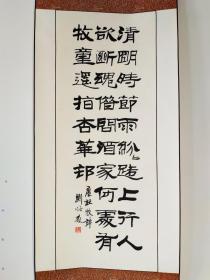 清明時節雨紛〻路上行人
欲斷魂借問酒家何處有
牧童遥指杏華邨
唐杜牧詩
劉